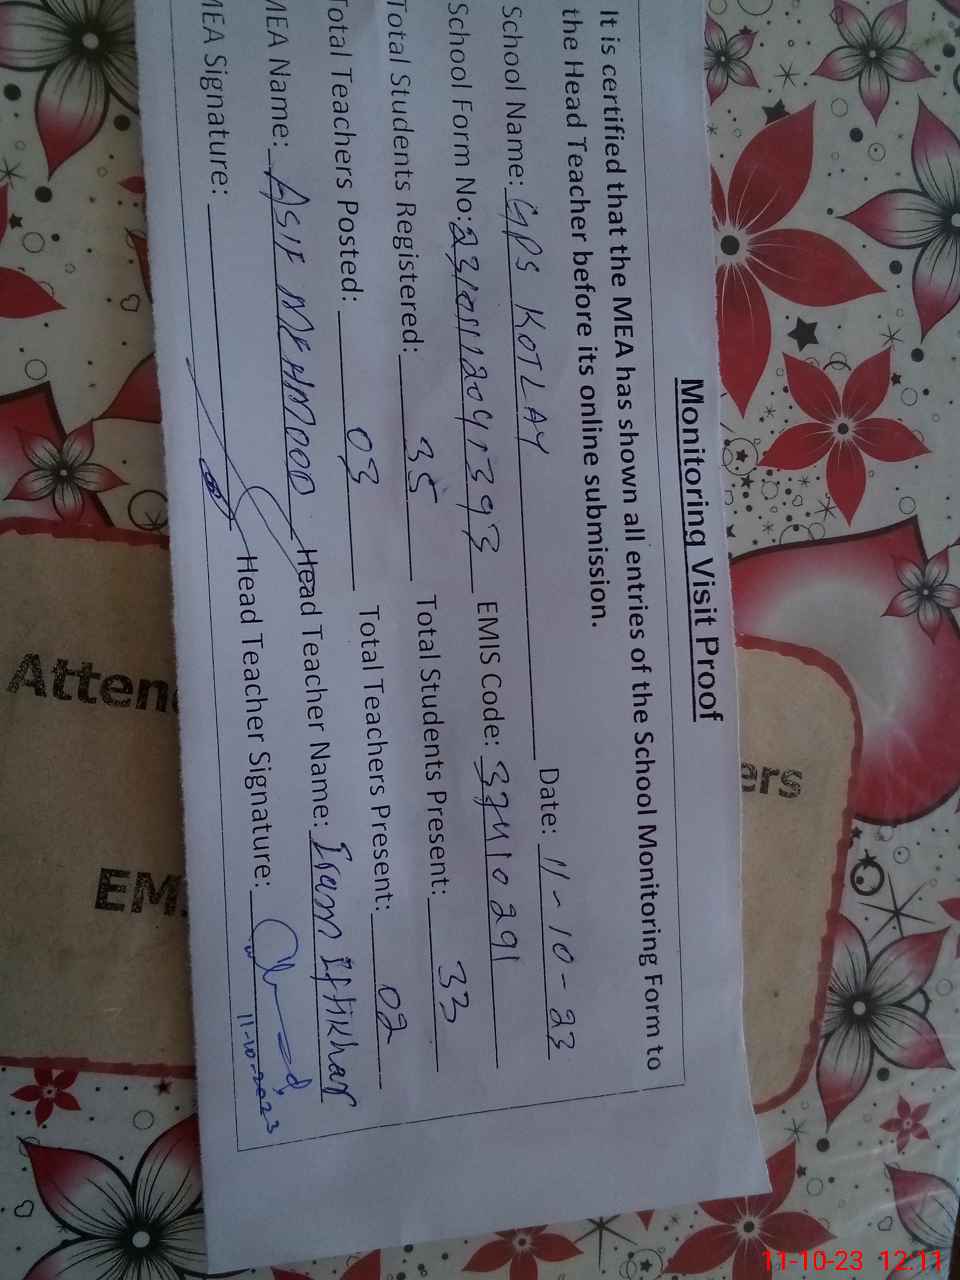 Monitoring Visit Proof
It is certified that the MEA has shown all entries of the School Monitoring Form to
the Head Teacher before its online submission.
School Name: GPS KOTLAY Date: 11-10-23
School Form No: EMIS Code: 37410291
Total Students Registered: 35 Total Students Present: 33
Total Teachers Posted: 03 Total Teachers Present: 02
MEA Name: ASIF MEHMOOD Head Teacher Name: Iram Iftikhar
MEA Signature: Head Teacher Signature:
11-10-2023
Atten
ers
EM
11-10-23 12:11